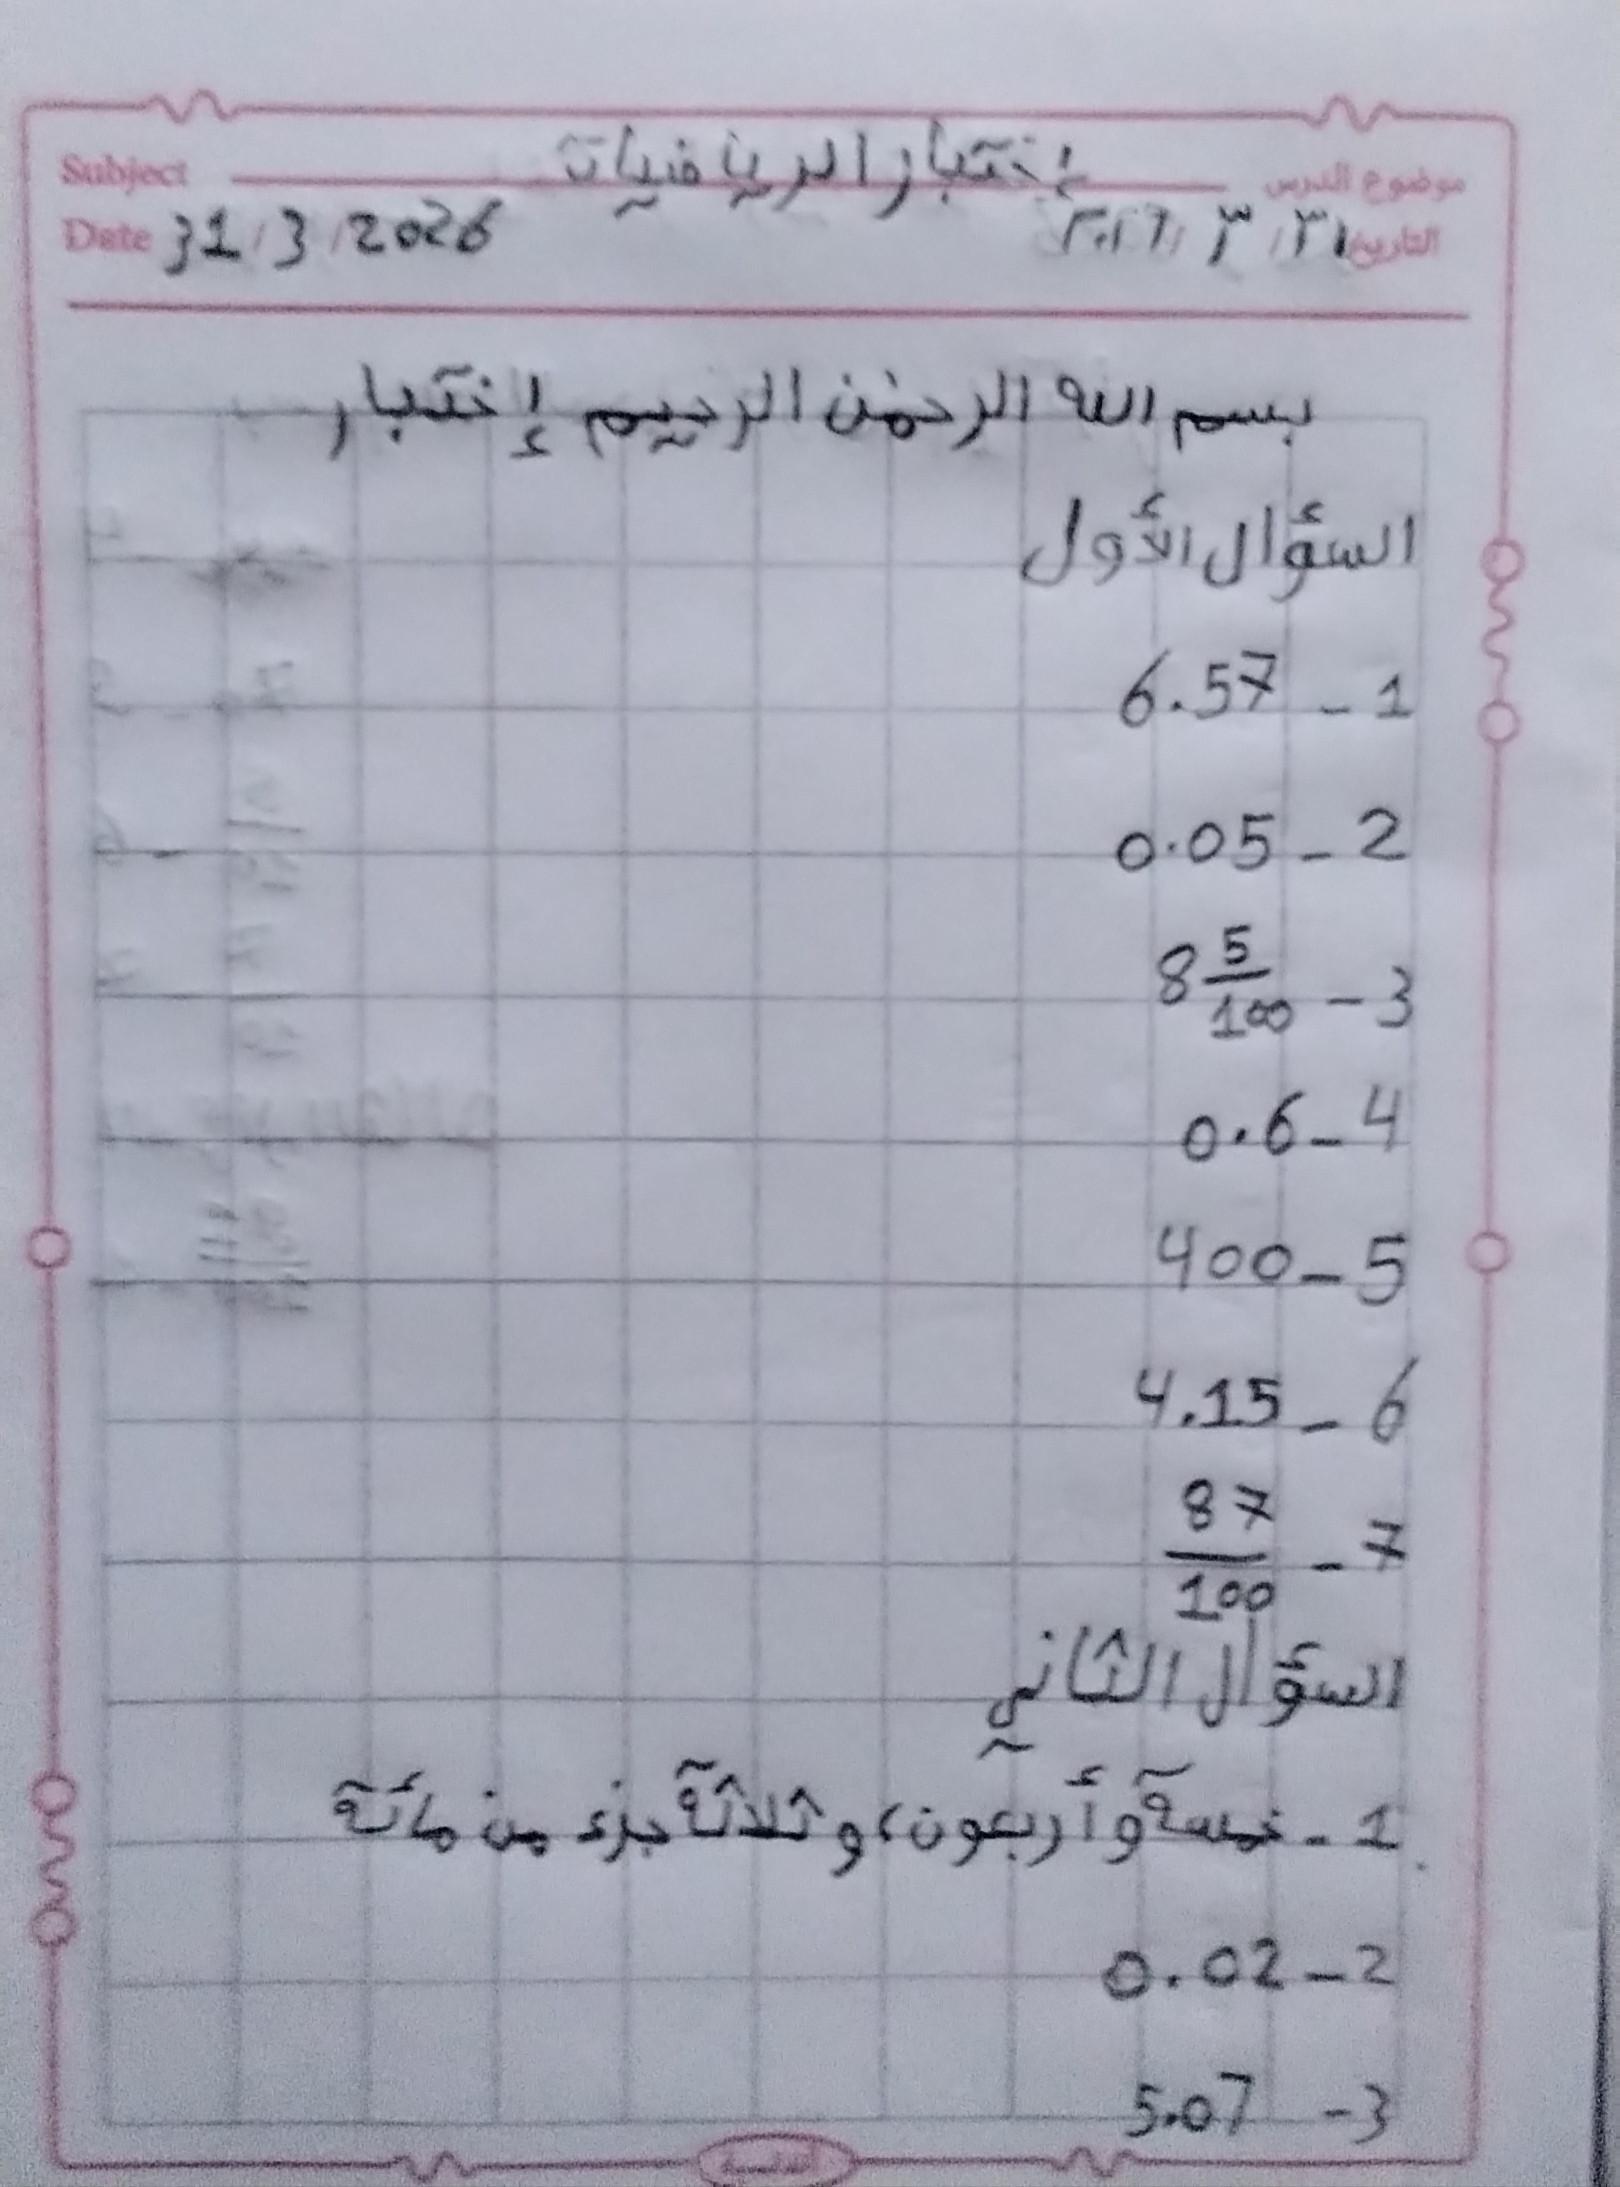 إختبار الرياضيات
Subject موضوع الدرس
Date 31/3/2026 التاريخ ٣١/٣/٢٠٢٦
بسم الله الرحمٰن الرحيم إختبار
السؤال الأول
1 - 6.57
2 - 0.05
3 - 8 5/100
4 - 0.6
5 - 400
6 - 4.15
7 - 87/100
السؤال الثاني
1 - خمسة وأربعون، وثلاثة جزء من مائة
2 - 0.02
3 - 5.07